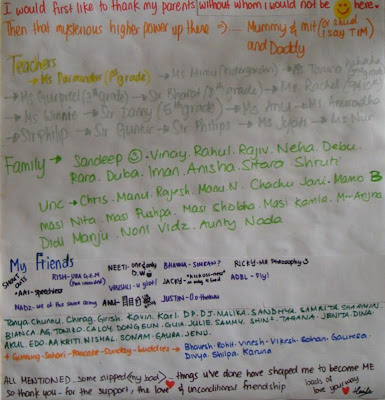 I would first like to thank my parents without whom I would not be here.
Then that mysterious higher power up there → .... Mummy & mit (or shud I say TIM)
and Daddy
Teachers
→ Ms Parminder (1st grade) → Ms Minu (kindergarden) → Ms Taruna
→ Ms Gurpreet (3rd grade) → Sir Bharat → Ms Rachel
→ Ms Winnie → Sir Danny (5th grade) → Ms Anu → Ms Anuradha
→ Sir Philip → Sir Gunter → Sir Philips → Ms Jyoti → Ms Nur
Family → Sandeep · Vinay. Rahul. Rajiv. Neha. Debu.
Rara. Duba. Iman. Anisha. Sitara. Shruti
Unc → Chris. Manu. Rajesh. Manu N. Chachu Jani. Mama B
Masi Nita. Masi Pushpa. Masi Shobha. Masi Kamla. M-Anjna
Didi Manju. Noni Vidz. Aunty Nada
My Friends
SHOUT OUTS
RISH-
NEETI-
BHAVNA - SIMRAN?
RICKY-MR Philosophy
•AAI-speechless
VRUSHLI-
JACKY-
ADEL - Fly!
NADZ- we r the same song
ANU-
JUSTIN-
Tanya. Chunnu. Chirag. Girish. Kavin. Karl. D.P. DJ. MALIKA. SANDHYA. SAMRITA.
BIANCA. AG. TOMOKO. CALOY. DONG EUN. GUIA. JULIE. SAMMY. SHINE. TARANA. JENITA. DINA.
AKUL. EDO. AAKRITI. NISHAL. SONAM. GAURA. JENU.
+ Gurung-Sahari-Pancake-Sunday-buddies → Bhavesh. Rohit. Vinesh. Vikesh. Rohan. Gaurera.
Divya. Shilpa. Karuna
ALL MENTIONED. Some slipped (my bad)... things u've done have shaped me to become ME
so thank you- for the support, the love & unconditional friendship
loads of love your way